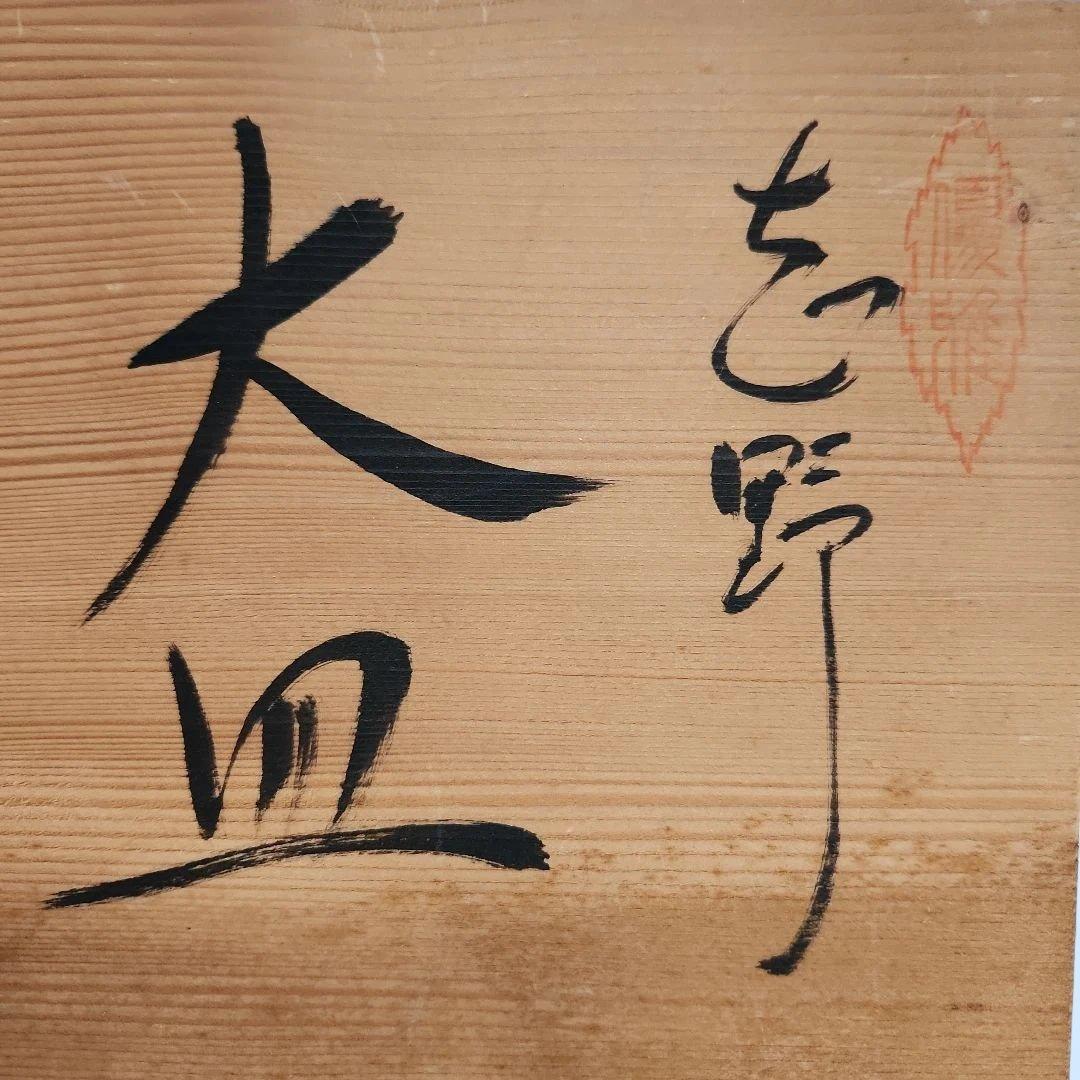 志野
大皿